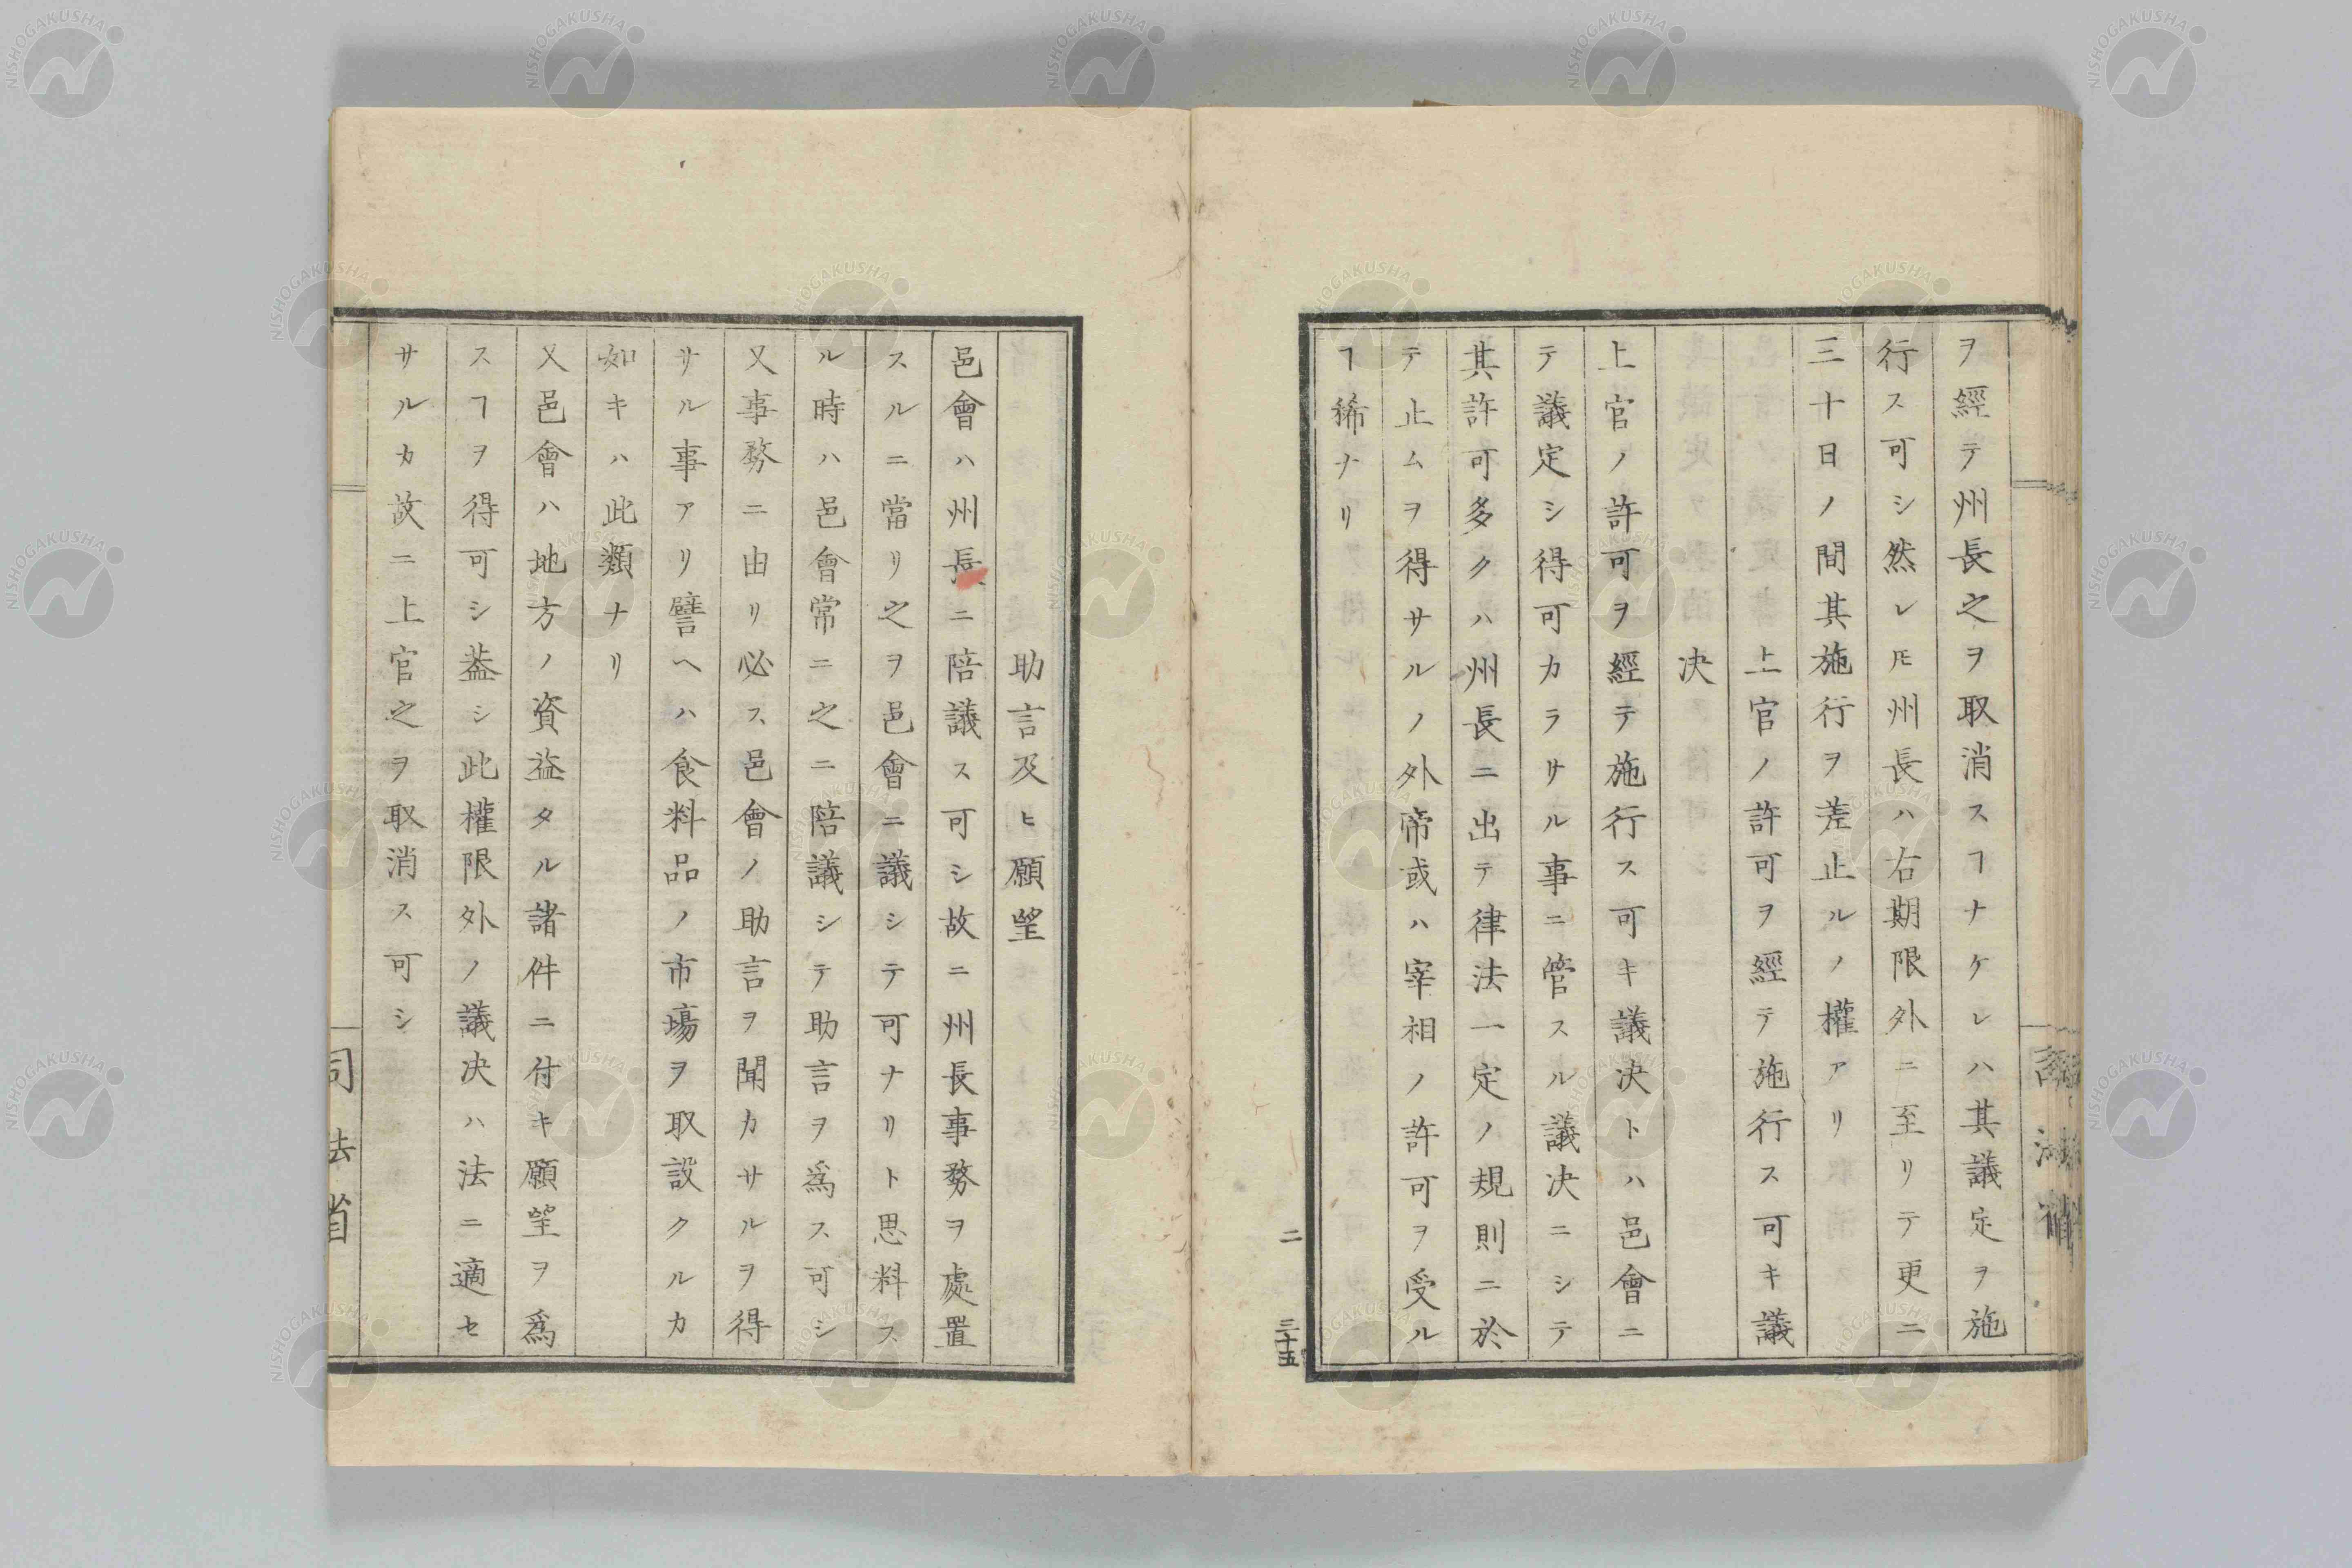 ヲ經テ州長之ヲ取消スヿナケレハ其議定ヲ施
行ス可シ然レ𪜈州長ハ右期限外ニ至リテ更ニ
三十日ノ間其施行ヲ差止ルノ權アリ
上官ノ許可ヲ經テ施行ス可キ議
決
上官ノ許可ヲ經テ施行ス可キ議決トハ邑會ニ
テ議定シ得可カラサル事ニ管スル議決ニシテ
其許可多クハ州長ニ出テ律法一定ノ規則ニ於
テ止ムヲ得サルノ外帝或ハ宰相ノ許可ヲ受ル
ヿ稀ナリ
二
三十五
助言及ヒ願望
邑會ハ州長ニ陪議ス可シ故ニ州長事務ヲ處置
スルニ當リ之ヲ邑會ニ議シテ可ナリト思料ス
ル時ハ邑會常ニ之ニ陪議シテ助言ヲ爲ス可シ
又事務ニ由リ必ス邑會ノ助言ヲ聞カサルヲ得
サル事アリ譬ヘハ食料品ノ市場ヲ取設クルカ
如キハ此類ナリ
又邑會ハ地方ノ資益タル諸件ニ付キ願望ヲ爲
スヿヲ得可シ蓋シ此權限外ノ議決ハ法ニ適セ
サルカ故ニ上官之ヲ取消ス可シ
司法省
NISHOGAKUSHA